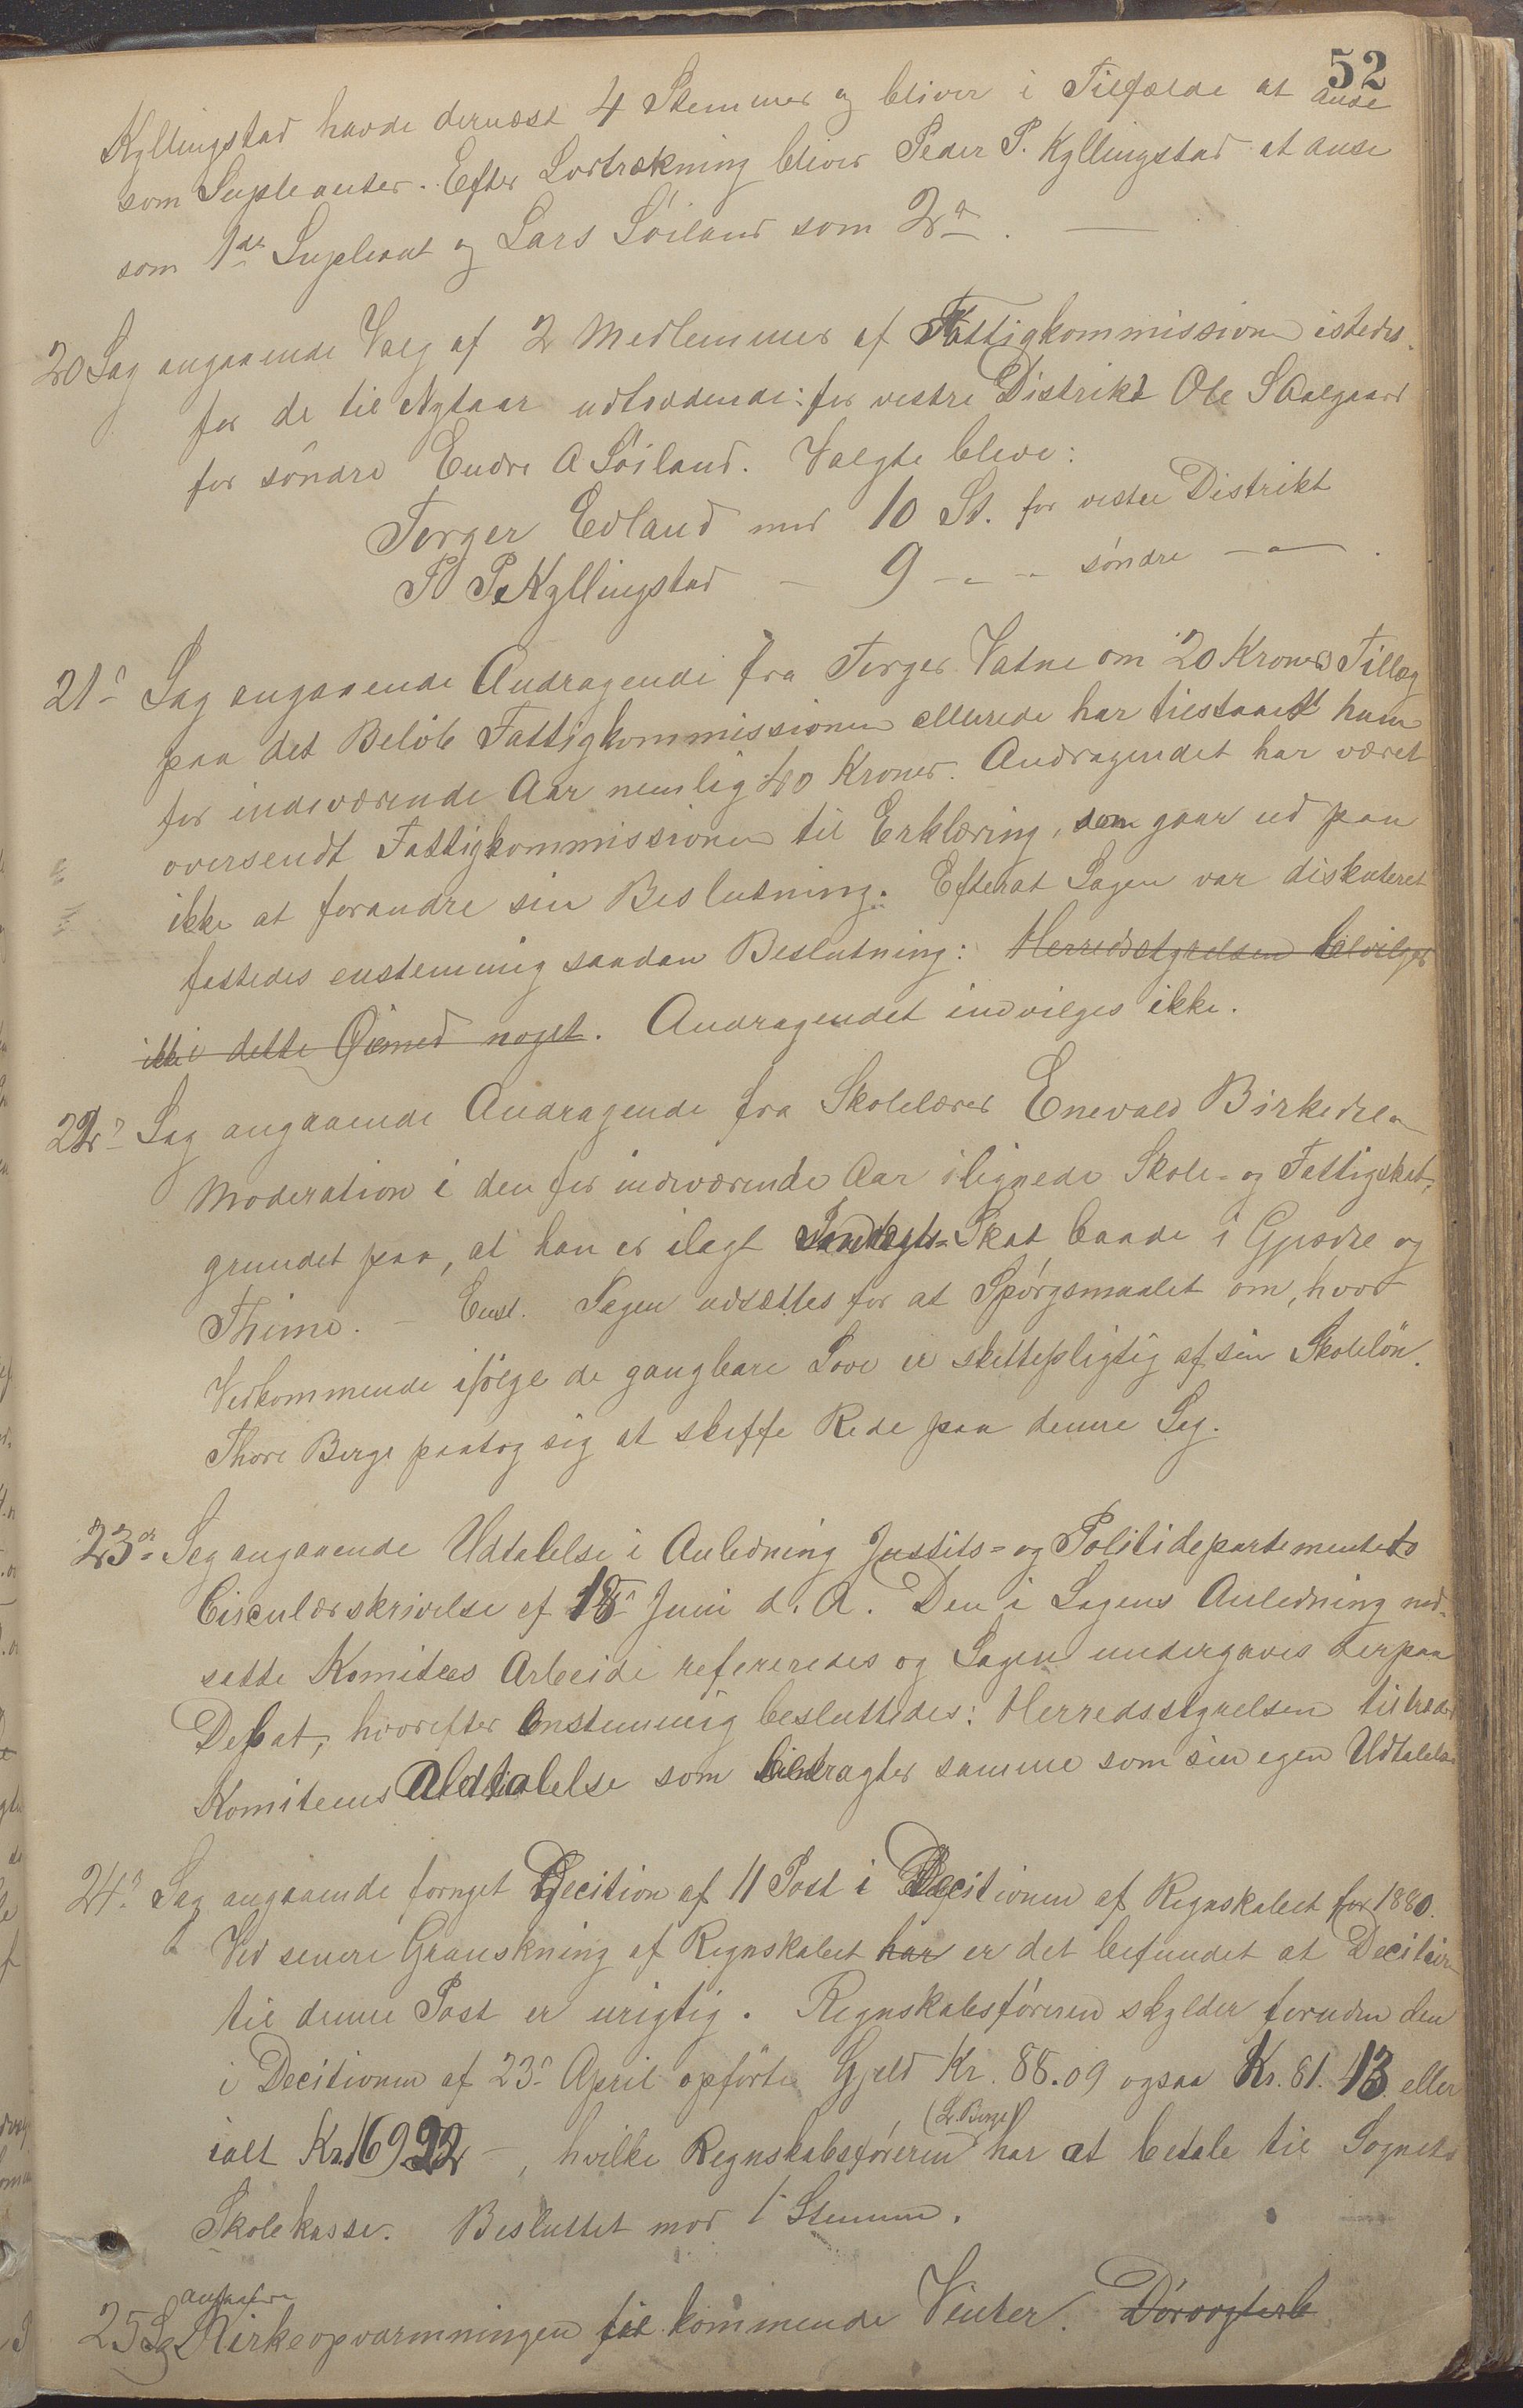 52
Kyllingstad havde dernæst 4 Stemmer og bliver i Tilfælde at anse
som Supleanter. Efter Lodtrækning bliver Peder P. Kyllingstad at anse
som 1ste Supleant og Lars Söiland som 2d.
20 Sag angaaende Valg af 2 Medlemmer af Fattigkommissionen isteden-
for de til Nytaar udtrædende: for vestre Distrikt Ole S Aalgaard
for söndre Endre A Söiland. Valgte bleve:
Torger Edland med 10 St. for vestre Distrikt
P. P. Kyllingstad - 9 - " - " söndre - " - .
21d Sag angaaende Andragende fra Torger Vatne om 20 Kroners Tillæg
paa det Belöb Fattigkommissionen allerede har tilstaaet ham
for indeværende Aar nemlig 40 Kroner. Andragendet har været
oversendt Fattigkommissionen til Erklæring, som gaar ud paa
ikke at forandre sin Beslutning. Efterat Sagen var diskuteret
fattedes enstemmig saadan Beslutning: Herredsstyrelsen bevilger
ikke i dette Öiemed noget. Andragendet indvilges ikke.
22d Sag angaaende Andragende fra Skolelærer Enevald Birkedal om
Moderation i den for indeværende Aar ilignede Skole- og Fattigskat,
grundet paa, at han er ilagt Indtægts-Skat baade i Gjesdal og
Thime. - Enst. Sagen udsættes for at Spörgsmaalet om, hvor
Vedkommende ifölge de gangbare Love er skattepligtig af sin Skolelön.
Thore Berge paatog sig at skaffe Rede paa denne Sag.
23de Sag angaaende Udtalelse i Anledning Justits- og Politidepartementets
Circulærskrivelse af 18d Juni d. A. Den i Sagens Anledning ned-
satte Komitees Arbeide refereredes og Sagen undergaves derpaa
Debat, hvorefter Enstemmig besluttedes: Herredsstyrelsen tiltræder
Komiteens Udtalelse som betragter samme som sin egen Udtalelse
24d. Sag angaaende fornyet Decition af 11 Post i Decitionen af Regnskabet for 1880.
Ved senere Granskning af Regnskabet har er det befundet at Decition
til denne Post er urigtig. Regnskabsföreren skylder foruden den
i Decitionen af 23d April opförte Gjæld Kr. 88.09 ogsaa Kr. 81.13 eller
ialt Kr. 169.22 -, hvilke Regnskabsföreren (L. Berge) har at betale til Sognets
Skolekasse. Besluttet mod 1 Stemme.
25 Sag angaaende Kirkeopvarmningen for kommende Vinter.